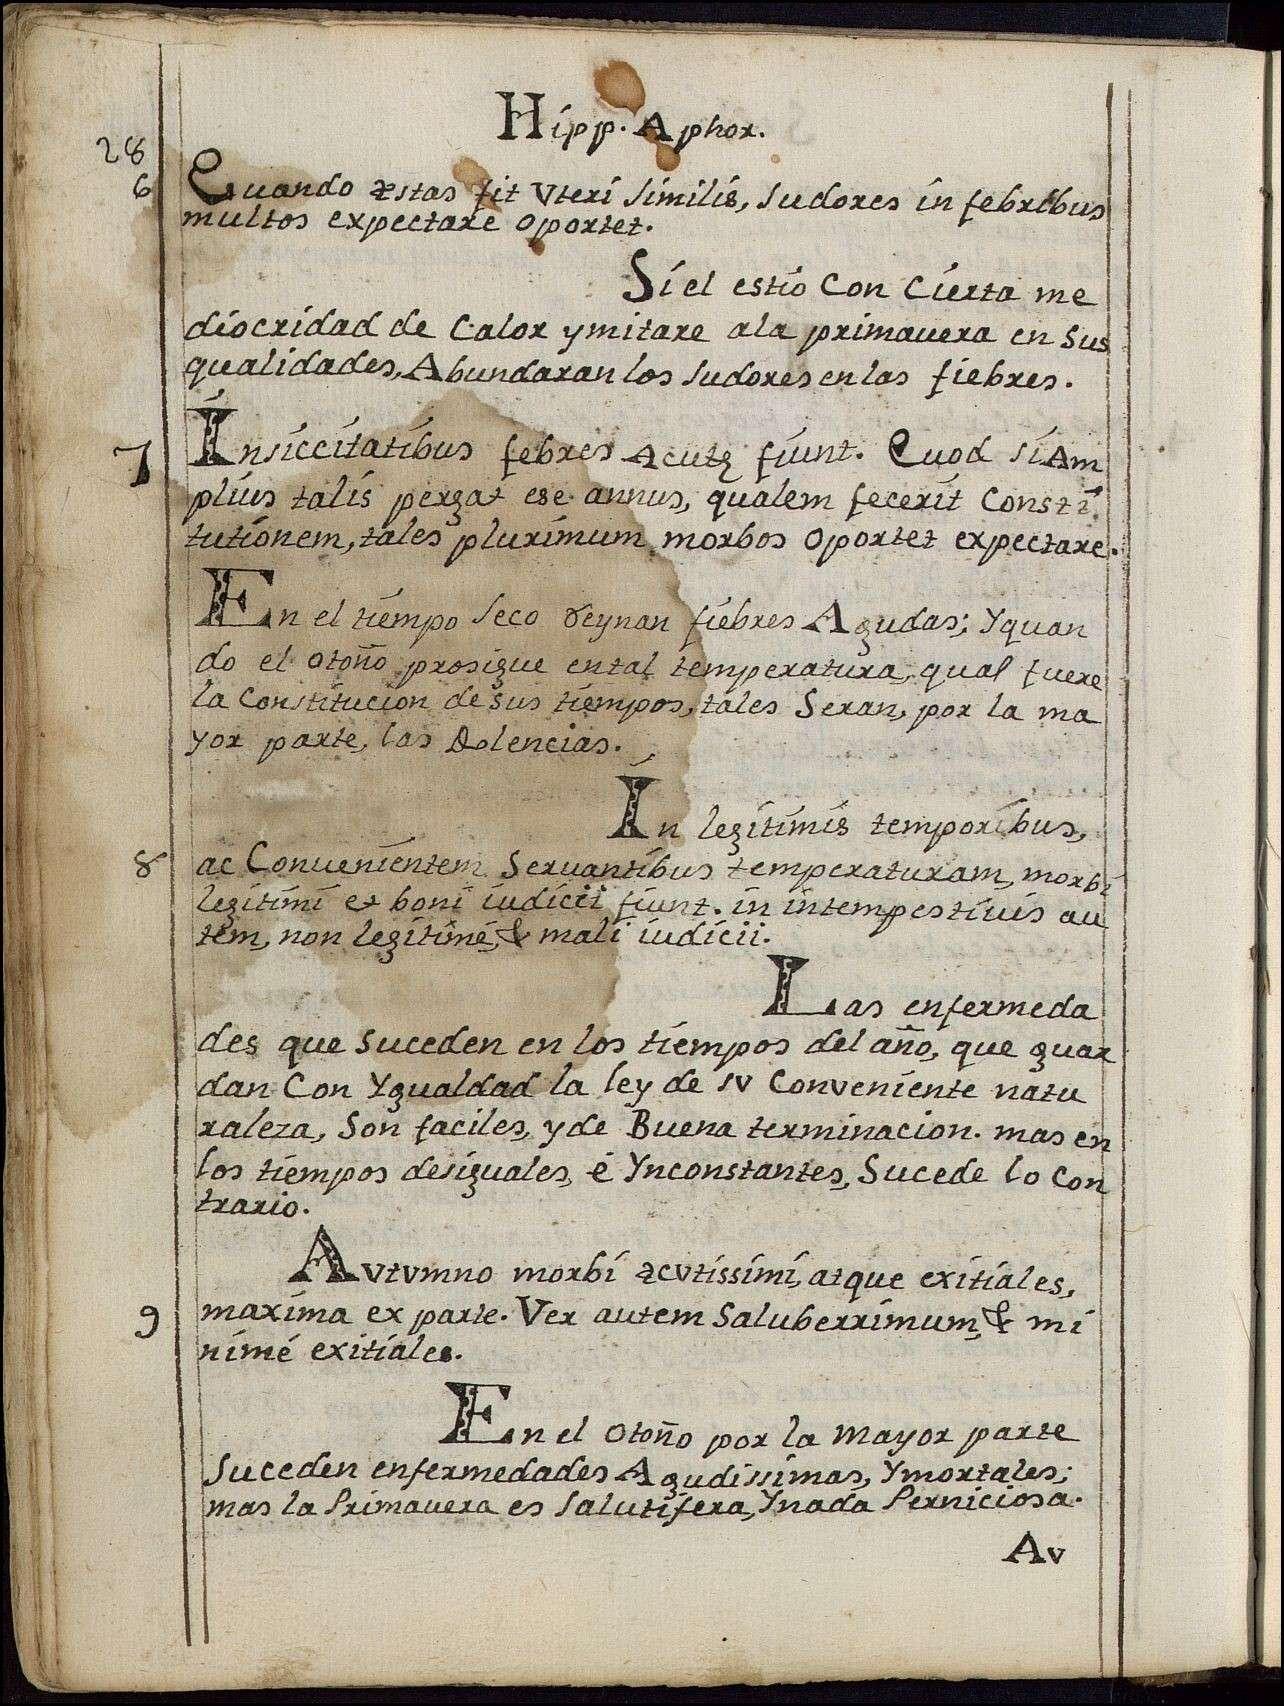 Hipp. Aphor.
28
6 Quando æstas fit Vteri similis, sudores in febribus
multos expectare oportet.
Si el estio Con Cierta me
diocridad de Calor ymitare ala primauera en Sus
qualidades, Abundaran los sudores en las fiebres.
7 In siccitatibus febres Acutę fiunt. Quod si Am
plius talis pergat ese annus, qualem fecerit Consti
tutionem, tales plurimum morbos oportet expectare.
En el tiempo seco reynan fiebres Agudas; Yquan
do el otoño prosigue ental temperatura, qual fuere
la Constitucion de sus tiempos, tales Seran, por la ma
yor parte, las Dolencias.
In legitimis temporibus,
8 ac Conuenientem Seruantibus temperaturam, morbi
legitimi et boni iudicii fiunt. in intempestiuis au
tem, non legitimé, & mali iudicii.
Las enfermeda
des que suceden en los tiempos del año, que guar
dan Con Ygualdad la ley de sv Conveniente natu
raleza, Son faciles, y de Buena terminacion. mas en
los tiempos desiguales, é Ynconstantes, Sucede lo Con
trario.
Avtvmno morbi acvtissimi, atque exitiales,
9 maxima ex parte. Ver autem Saluberrimum, & mi
nimé exitiales.
En el otoño por la mayor parte
suceden enfermedades Agudissimas, Ymortales;
mas la Primauera es salutifera, Ynada Perniciosa.
Av